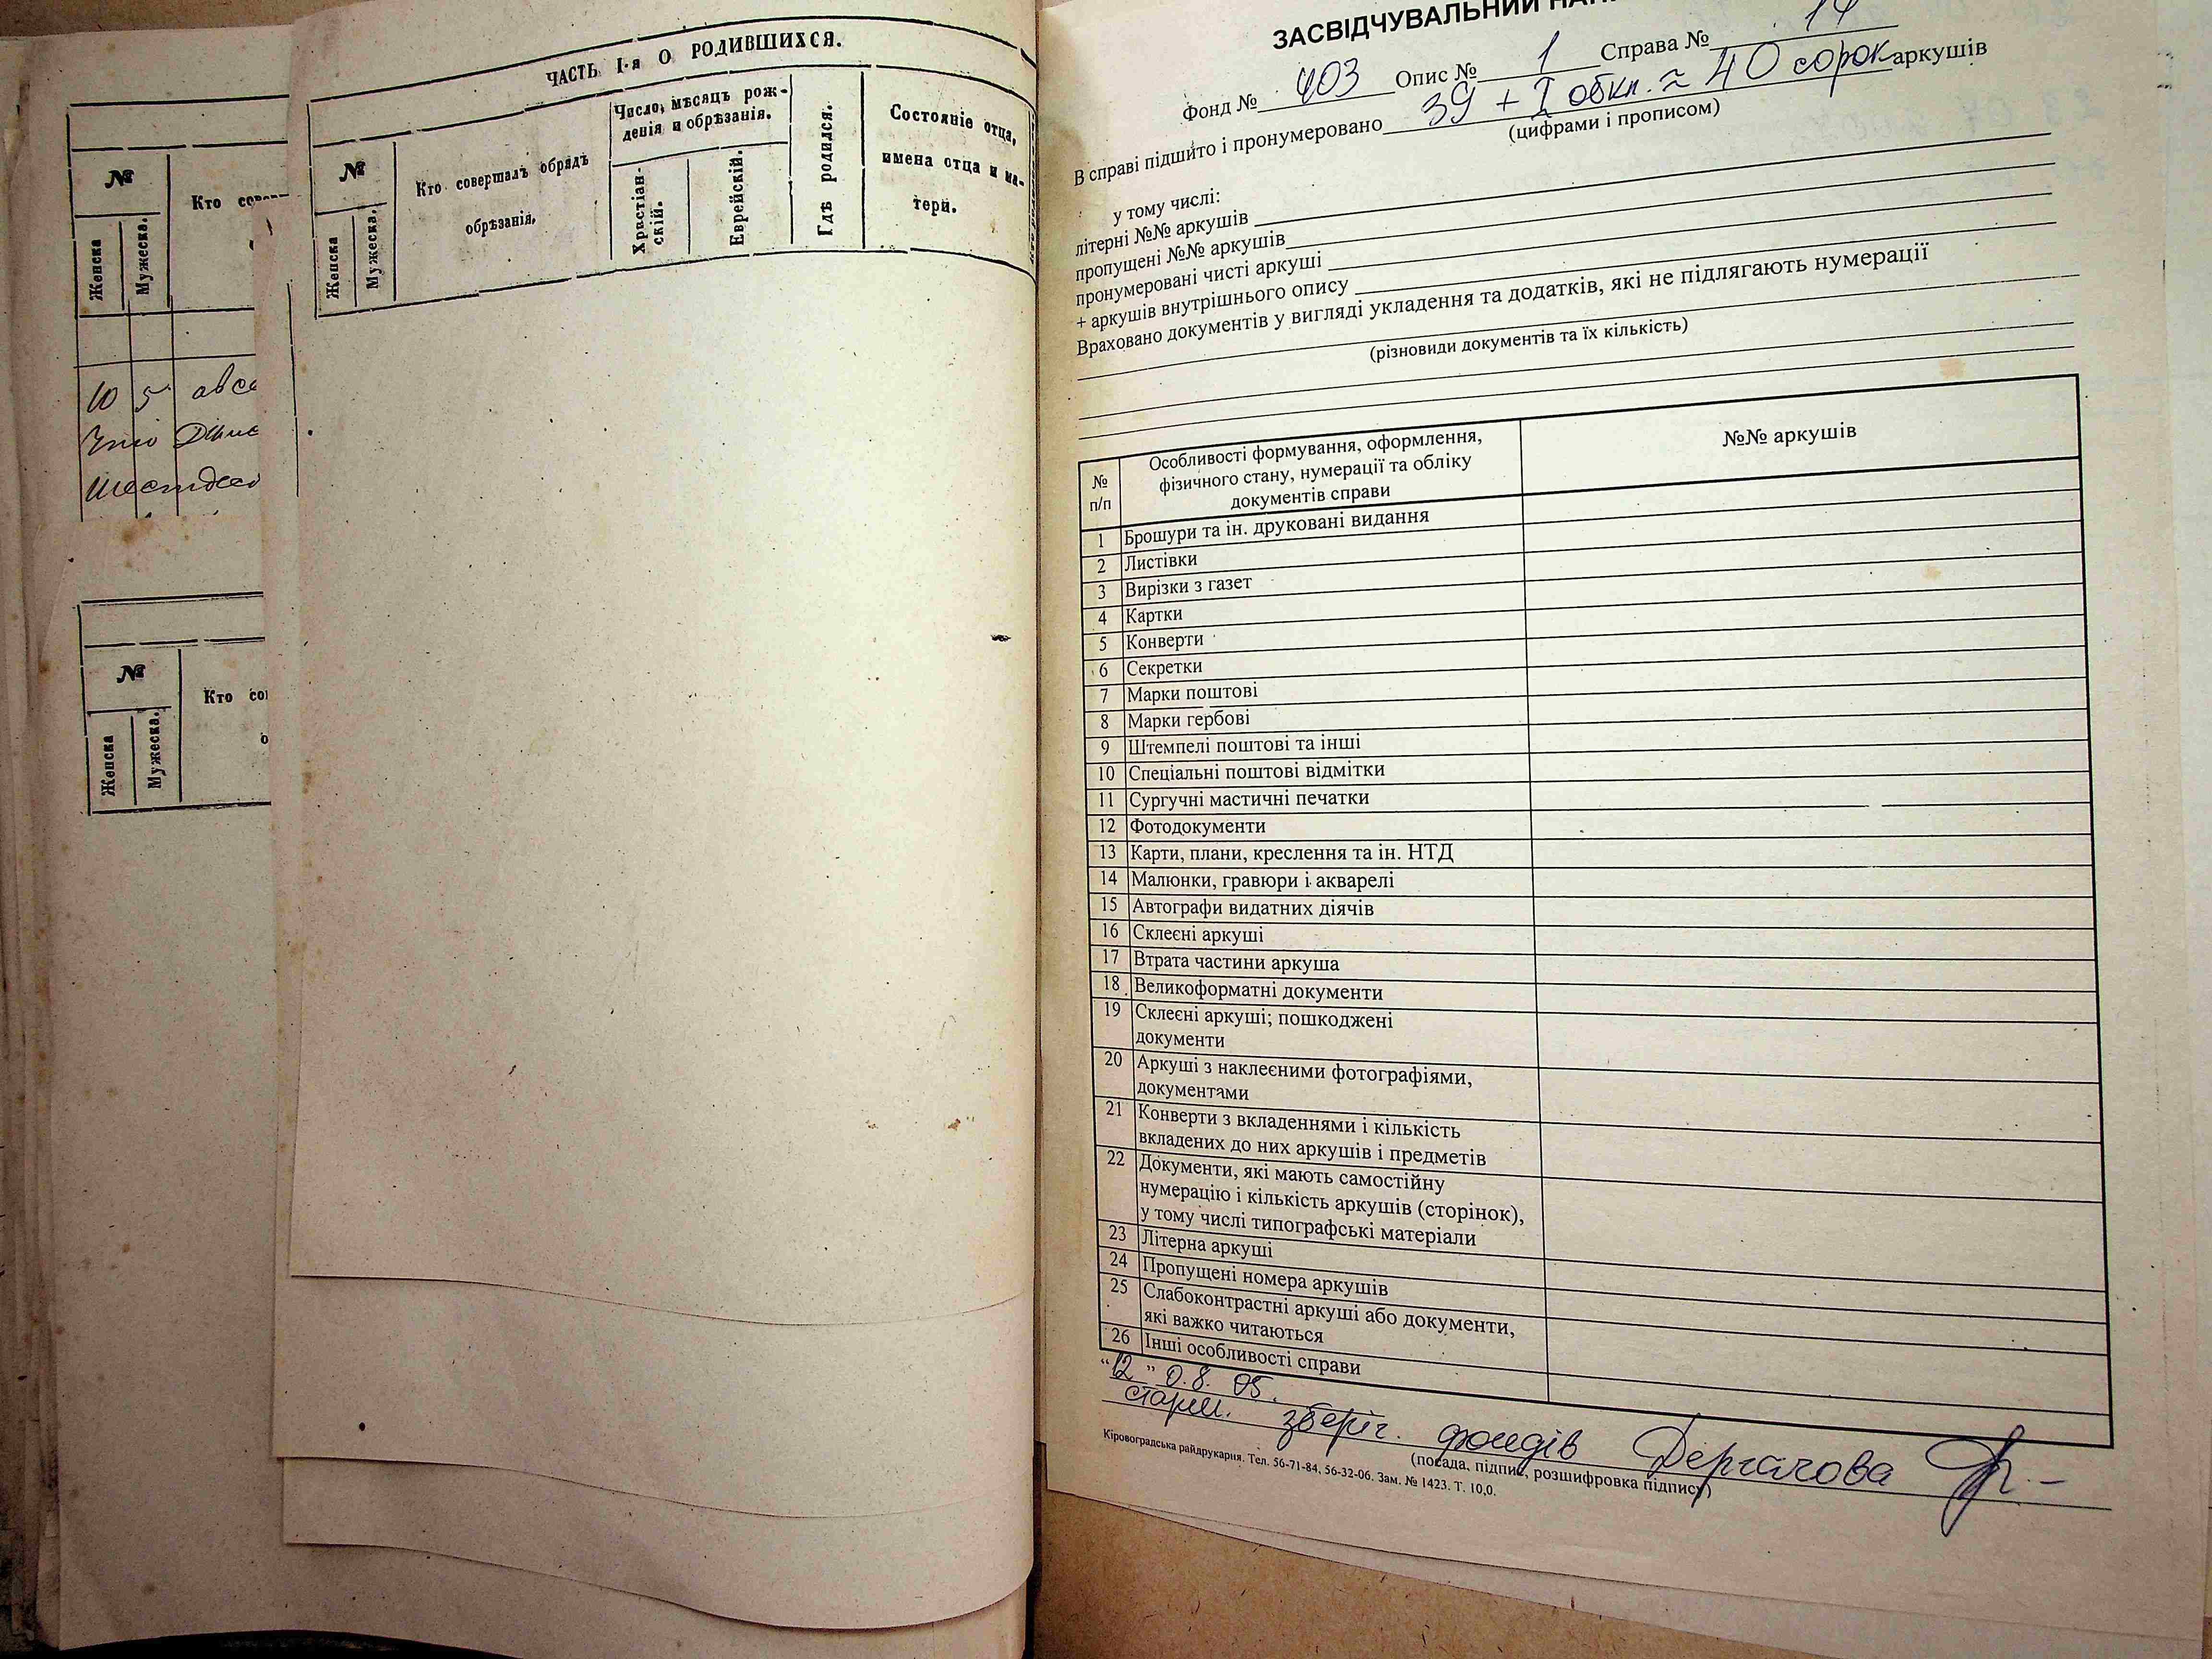 №
Кто
Женска
Мужеска.
10 5
№
Кто
Женска
Мужеска.
ЧАСТЬ I-я О РОДИВШИХСЯ.
№
Женска
Мужеска.
Кто совершалъ обрядъ
обрѣзанія.
Число, мѣсяцъ рож-
денія и обрѣзанія.
Христіан-
скій.
Еврейскій.
Гдѣ родился.
Состояніе отца,
имена отца и ма-
тери.
ЗАСВІДЧУВАЛЬНИЙ
Фонд № 403 Опис № 1 Справа № 14
В справі підшито і пронумеровано 39 + I обкл. ≈ 40 сорок аркушів
(цифрами і прописом)
у тому числі:
літерні №№ аркушів
пропущені №№ аркушів
пронумеровані чисті аркуші
+ аркушів внутрішнього опису
Враховано документів у вигляді укладення та додатків, які не підлягають нумерації
(різновиди документів та їх кількість)
№
п/п
Особливості формування, оформлення,
фізичного стану, нумерації та обліку
документів справи
№№ аркушів
1 Брошури та ін. друковані видання
2 Листівки
3 Вирізки з газет
4 Картки
5 Конверти
6 Секретки
7 Марки поштові
8 Марки гербові
9 Штемпелі поштові та інші
10 Спеціальні поштові відмітки
11 Сургучні мастичні печатки
12 Фотодокументи
13 Карти, плани, креслення та ін. НТД
14 Малюнки, гравюри і акварелі
15 Автографи видатних діячів
16 Склеєні аркуші
17 Втрата частини аркуша
18 Великоформатні документи
19 Склеєні аркуші; пошкоджені
документи
20 Аркуші з наклеєними фотографіями,
документами
21 Конверти з вкладеннями і кількість
вкладених до них аркушів і предметів
22 Документи, які мають самостійну
нумерацію і кількість аркушів (сторінок),
у тому числі типографські матеріали
23 Літерна аркуші
24 Пропущені номера аркушів
25 Слабоконтрастні аркуші або документи,
які важко читаються
26 Інші особливості справи
"12" 0.8. 05.
старш. зберіг. фондів Дергачова
(посада, підпис, розшифровка підпису)
Кіровоградська райдрукарня. Тел. 56-71-84, 56-32-06. Зам. № 1423. Т. 10,0.